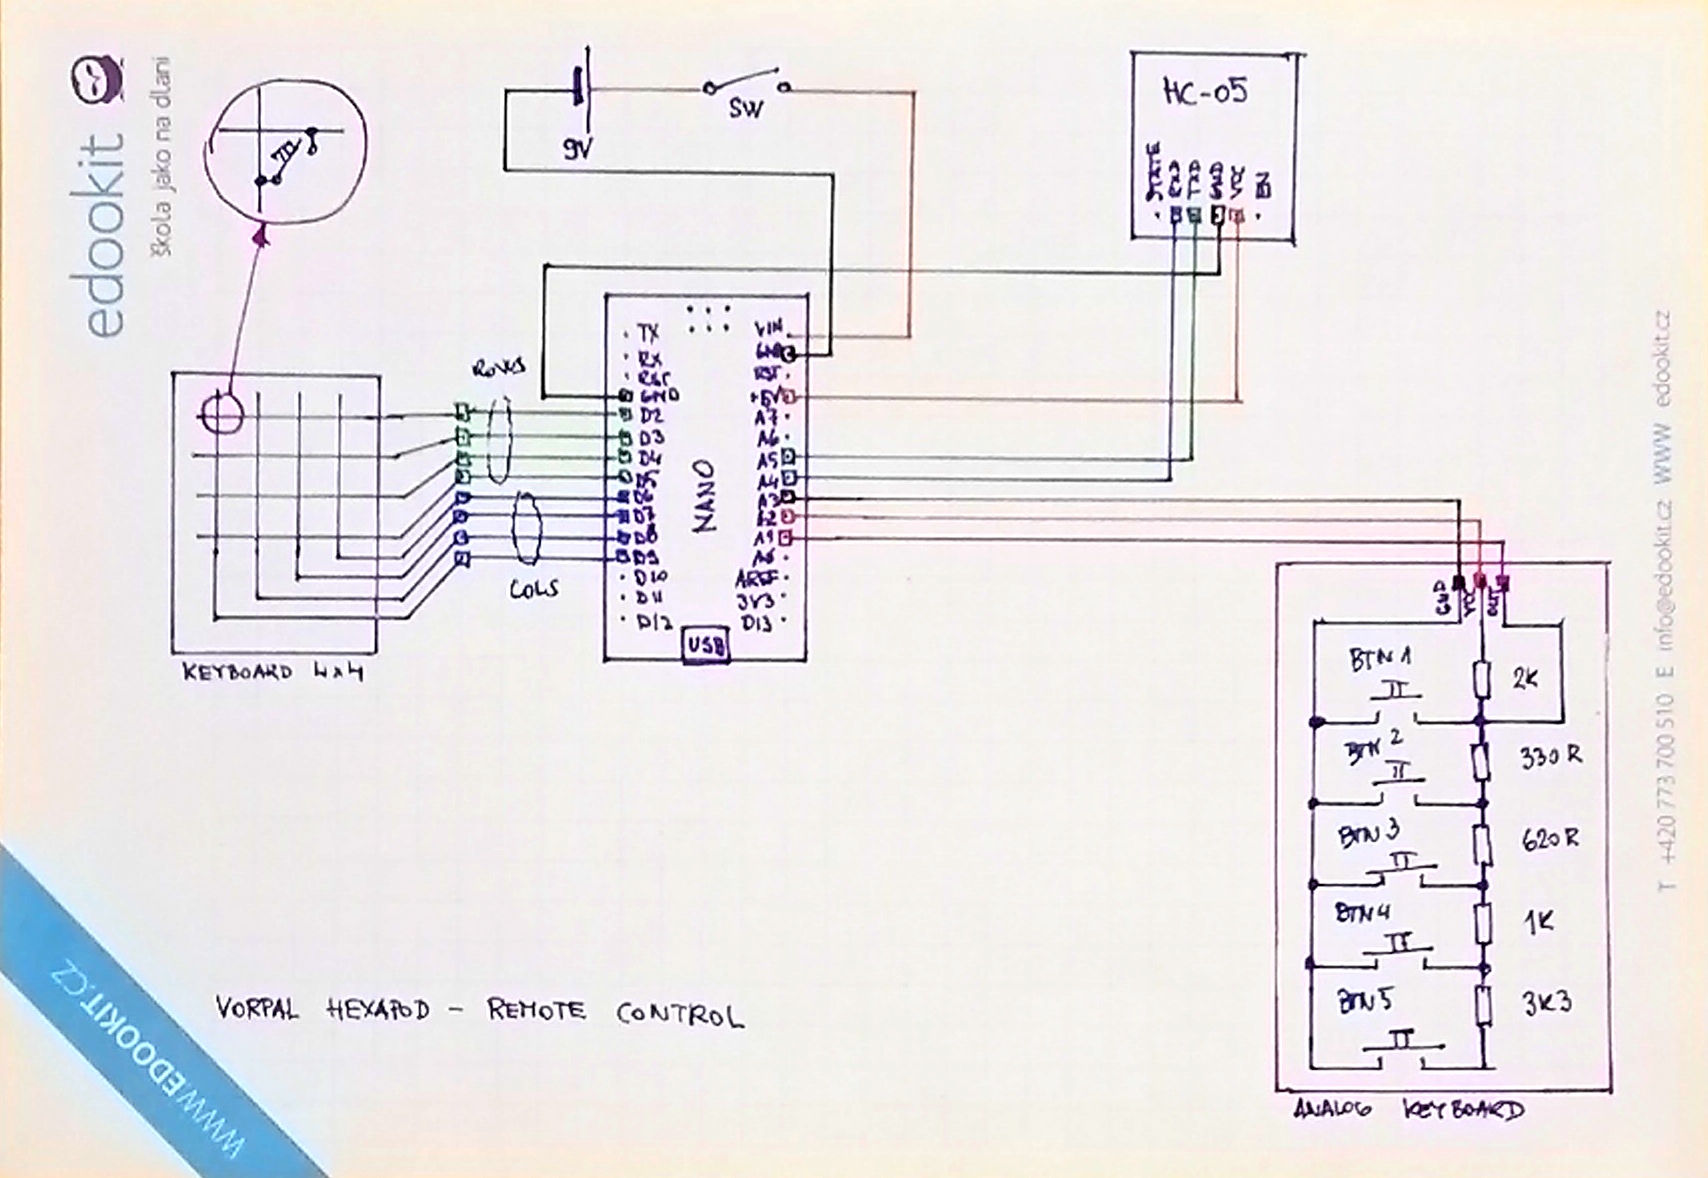 edookit
škola jako na dlani
9V
SW
HC-05
STATE
RXD
TXD
GND
VCC
EN
ROWS
COLS
KEYBOARD 4x4
NANO
USB
TX
RX
RST
GND
D2
D3
D4
D5
D6
D7
D8
D9
D10
D11
D12
VIN
GND
RST
+5V
A7
A6
A5
A4
A3
A2
A1
A0
AREF
3V3
D13
GND
VCC
OUT
BTN 1
2K
BTN 2
330R
BTN 3
620R
BTN4
1K
BTN5
3K3
ANALOG KEYBOARD
VORPAL HEXAPOD - REMOTE CONTROL
WWW.EDOOKIT.CZ
T +420 773 700 510 E info@edookit.cz WWW edookit.cz